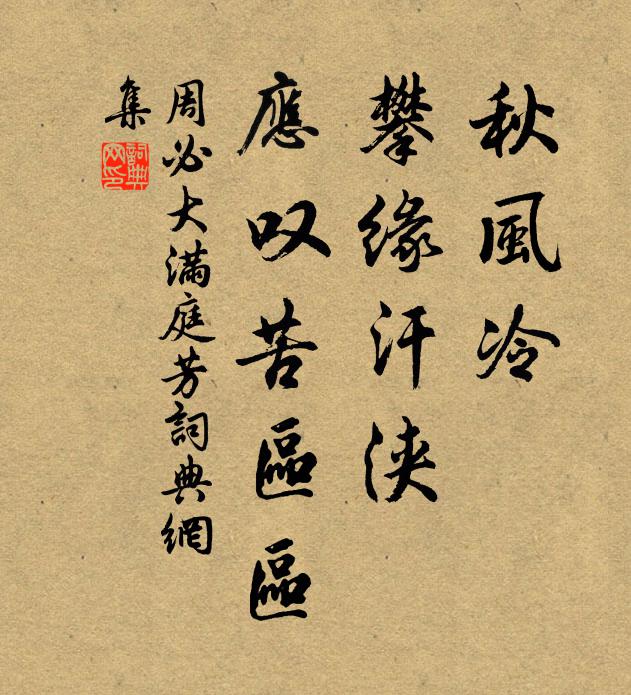 秋風冷
攀緣汗浹
應叹苦區區
周必大滿庭芳詞典網
集
詞典網印